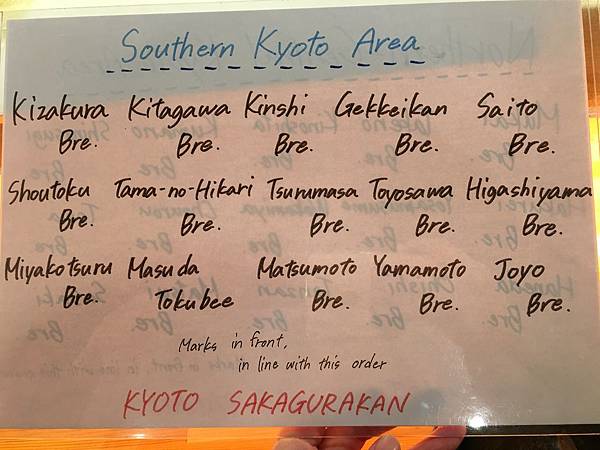 Southern Kyoto Area
Kizakura Kitagawa Kinshi Gekkeikan Saito
Bre. Bre. Bre. Bre. Bre.
Shoutoku Tama-no-Hikari Tsurumasa Toyosawa Higashiyama
Bre. Bre. Bre. Bre. Bre.
Miyakotsuru Masuda Matsumoto Yamamoto Joyo
Bre. Tokubee Bre. Bre. Bre.
Marks in front,
in line with this order
KYOTO SAKAGURAKAN